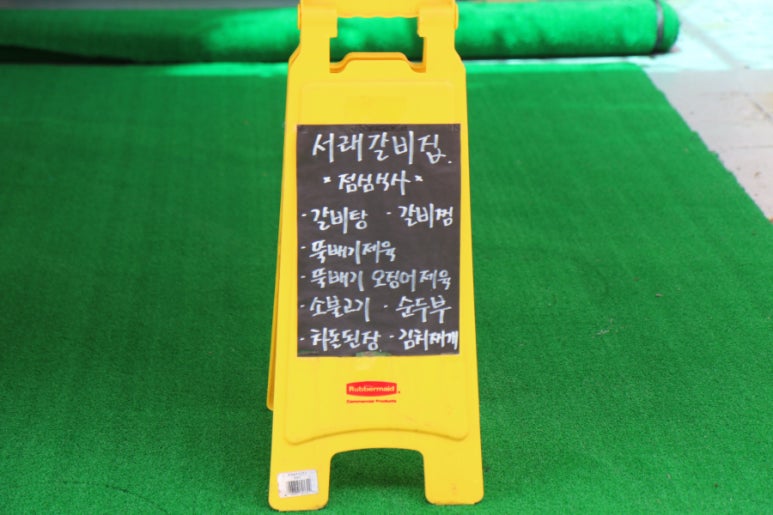 서래갈비집.
" 점심식사 "
· 갈비탕 · 갈비찜
· 뚝배기제육
· 뚝배기 오징어제육
· 소불고기 · 순두부
· 차돌된장 · 김치찌개
Rubbermaid
Commercial Products